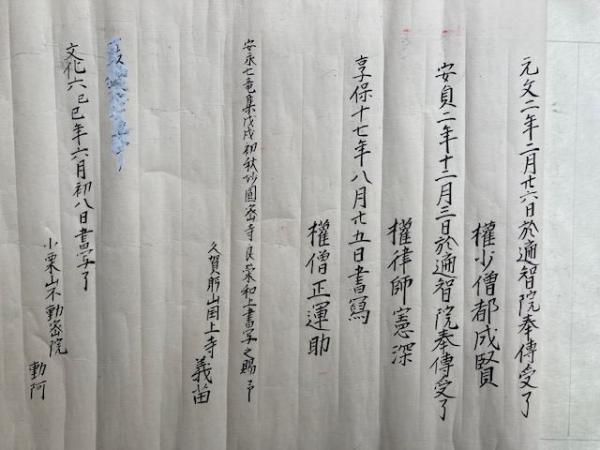 元文二年二月廿六日於遍智院奉傳受了
權少僧都成賢
安貞二年十二月三日於遍智院奉傳受了
權律師憲深
享保十七年八月廿五日書寫
權僧正運助
安永七竜集戊戌初秋妙圓密寺良榮和上書写之賜予
久賀躬山国上寺 義苗
文化六己巳年六月初八日書写了
小栗山不動密院 動阿